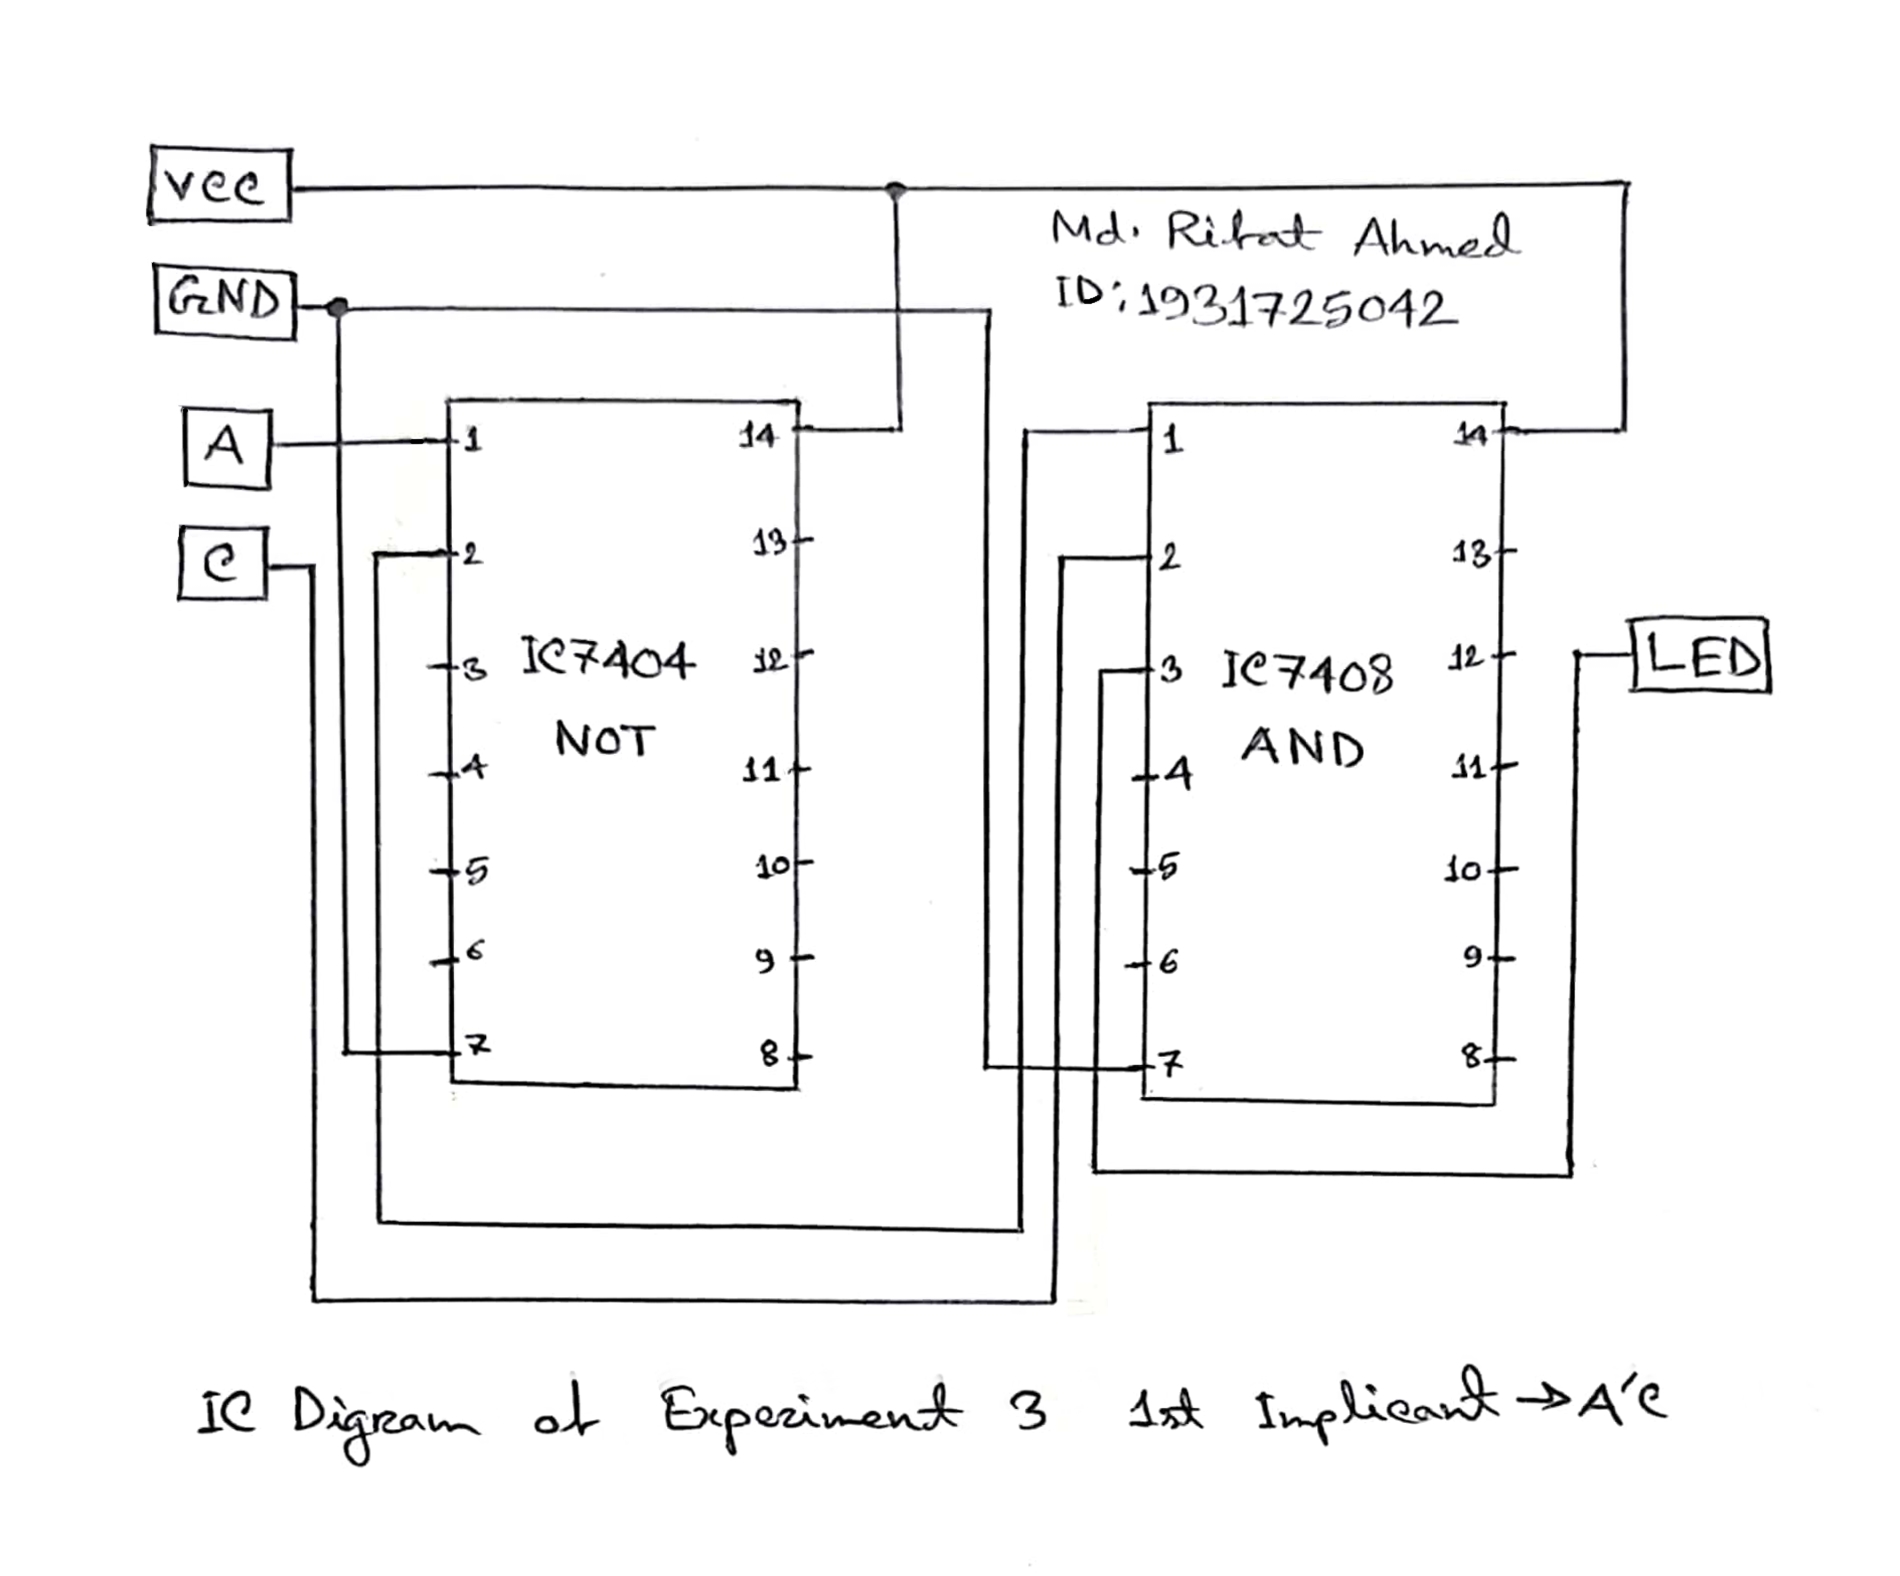 VCC
Md. Rifat Ahmed
GND
ID: 1931725042
A
C
1
2
3
4
5
6
7
14
13
12
11
10
9
8
IC7404
NOT
1
2
3
4
5
6
7
14
13
12
11
10
9
8
IC7408
AND
LED
IC Digram of Experiment 3 1st Implicant → A'C